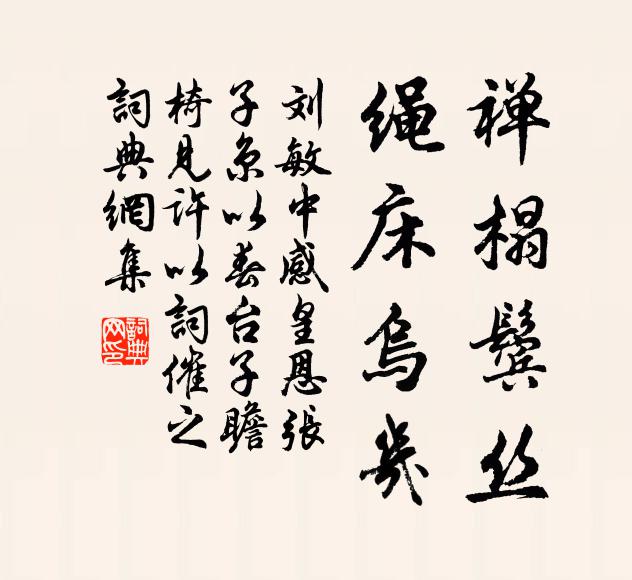 禅榻鬓丝
绳床乌几
刘敏中感皇恩张
子京以春台子瞻
椅见许以词催之
詞典網集
詞典網印